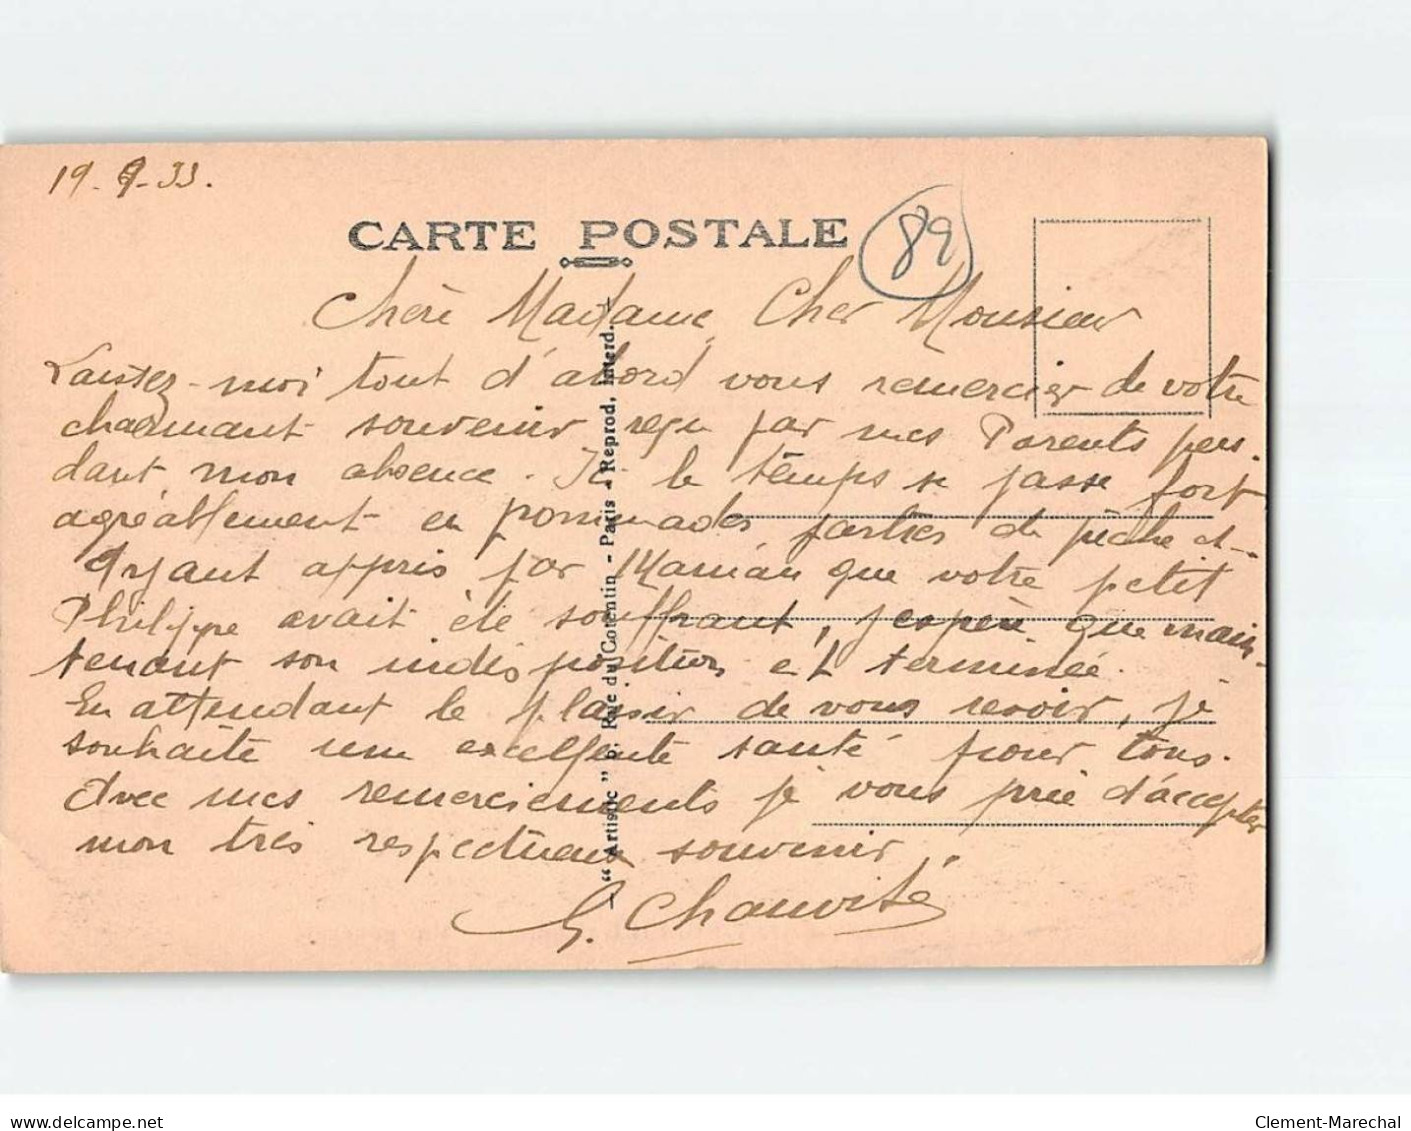 19. 9. 33.
CARTE POSTALE
89
Chère Madame, Cher Monsieur
Laissez-moi tout d'abord vous remercier de votre
charmant souvenir reçu par mes Parents pen-
dant mon absence. Ici le temps se passe fort
agréablement en promenades, parties de pêche et
Ayant appris par Maman que votre petit
Philippe avait été souffrant, j'espère que main-
tenant son indisposition est terminée.
En attendant le plaisir de vous revoir, je
souhaite une excellente santé pour tous.
Avec mes remerciements je vous prie d'accepter
mon très respectueux souvenir.
G. Chauvité
"Artistic" 6, Rue du Cotentin - Paris - Reprod. Interd.
www.delcampe.net
Clement-Marechal